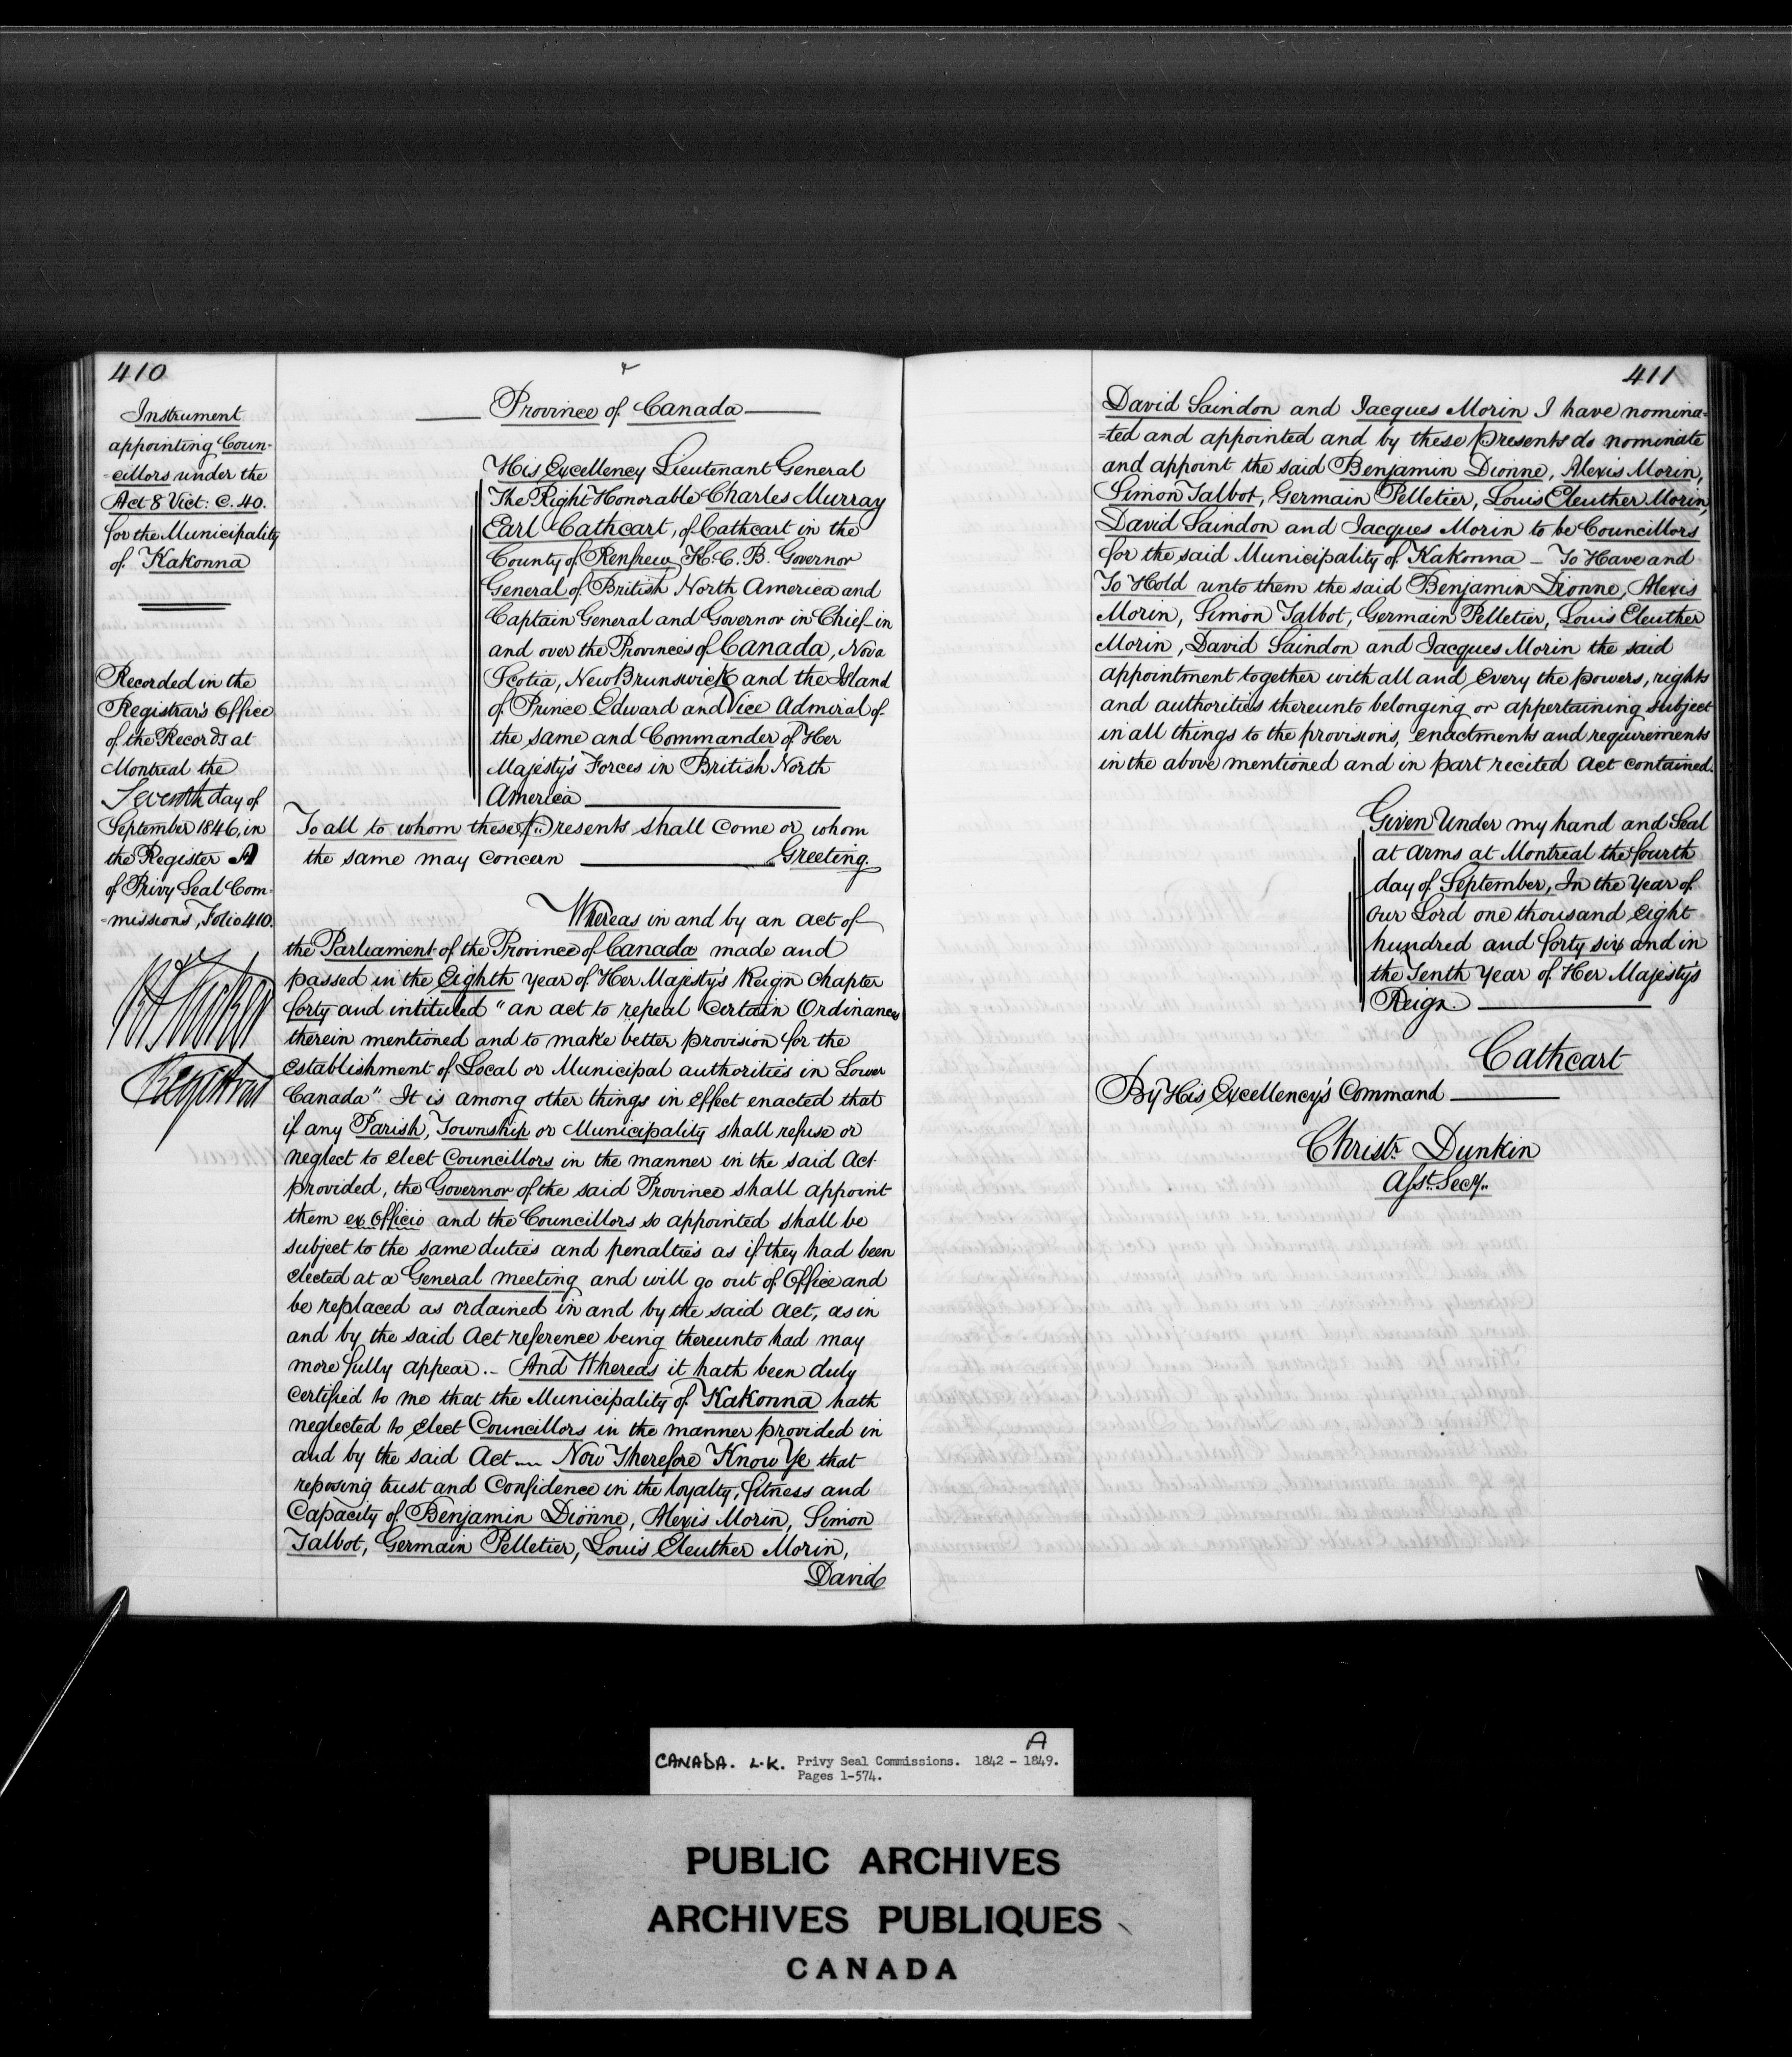 410
Instrument
appointing Coun-
-cillors under the
Act 8 Vict: C. 40.
for the Municipality
of Kakonna
Recorded in the
Registrar's Office
of the Records at
Montreal the
Seventh day of
September 1846, in
the Register A
of Privy Seal Com-
-missions, Folio 410.
Registrar
Province of Canada
His Excellency Lieutenant General
The Right Honorable Charles Murray
Earl Cathcart, of Cathcart in the
County of Renfrew K.C.B. Governor
General of British North America and
Captain General and Governor in Chief in
and over the Provinces of Canada, Nova
Scotia, New Brunswick and the Island
of Prince Edward and Vice Admiral of
the same and Commander of Her
Majesty's Forces in British North
America
To all to whom these Presents shall come or whom
the same may concern Greeting.
Whereas in and by an act of
the Parliament of the Province of Canada made and
passed in the Eighth year of Her Majesty's Reign Chapter
forty and intituled "an act to repeal certain Ordinances
therein mentioned and to make better provision for the
establishment of Local or Municipal authorities in Lower
Canada" It is among other things in effect enacted that
if any Parish, Township or Municipality shall refuse or
neglect to elect Councillors in the manner in the said Act
provided, the Governor of the said Province shall appoint
them ex officio and the Councillors so appointed shall be
subject to the same duties and penalties as if they had been
elected at a General meeting and will go out of Office and
be replaced as ordained in and by the said act, as in
and by the said Act reference being thereunto had may
more fully appear.- And Whereas it hath been duly
certified to me that the Municipality of Kakonna hath
neglected to elect Councillors in the manner provided in
and by the said Act — Now Therefore Know Ye that
reposing trust and Confidence in the loyalty, fitness and
Capacity of Benjamin Dionne, Alexis Morin, Simon
Talbot, Germain Pelletier, Louis Eleuther Morin,
David
411
David Saindon and Jacques Morin I have nomina-
-ted and appointed and by these Presents do nominate
and appoint the said Benjamin Dionne, Alexis Morin,
Simon Talbot, Germain Pelletier, Louis Eleuther Morin,
David Saindon and Jacques Morin to be Councillors
for the said Municipality of Kakonna - To Have and
To Hold unto them the said Benjamin Dionne, Alexis
Morin, Simon Talbot, Germain Pelletier, Louis Eleuther
Morin, David Saindon and Jacques Morin the said
appointment together with all and every the powers, rights
and authorities thereunto belonging or appertaining subject
in all things to the provisions, enactments and requirements
in the above mentioned and in part recited Act contained.
Given Under my hand and Seal
at arms at Montreal the fourth
day of September, In the Year of
our Lord one thousand eight
hundred and forty six and in
the Tenth Year of Her Majesty's
Reign.
Cathcart
By His Excellency's Command
Christr. Dunkin
Asst. Secy.
A
CANADA. L.K. Privy Seal Commissions. 1842 - 1849.
Pages 1-574.
PUBLIC ARCHIVES
ARCHIVES PUBLIQUES
CANADA